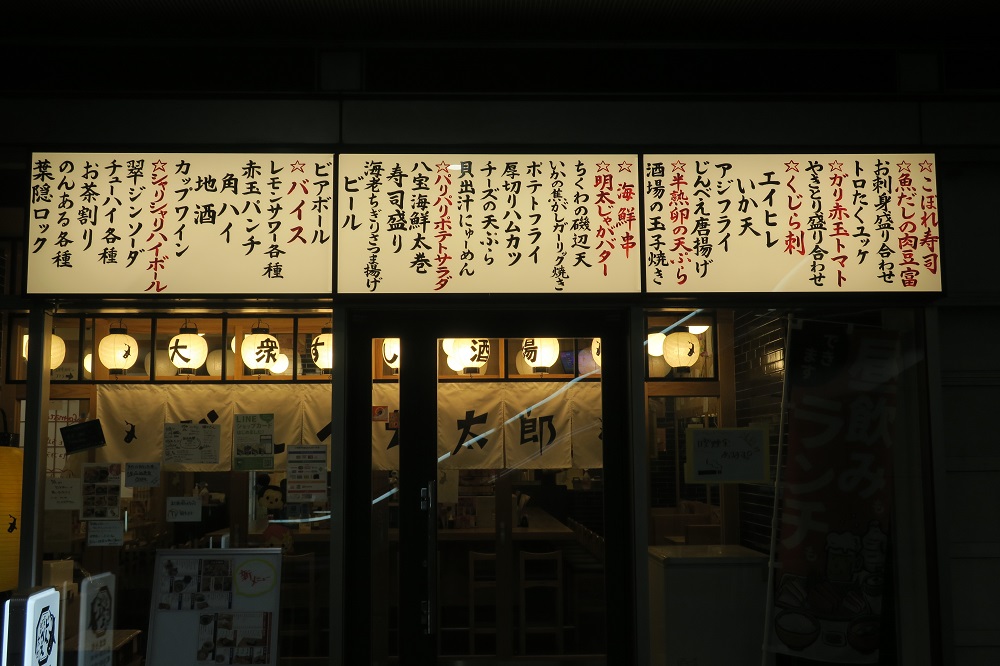 ☆こぼれ寿司
☆魚だしの肉豆富
お刺身盛り合わせ
トロたくユッケ
☆ガリ赤玉トマト
やきとり盛り合わせ
☆くじら刺
エイヒレ
いか天
アジフライ
じんべえ唐揚げ
☆半熟卵の天ぷら
酒場の玉子焼き
☆海鮮串
☆明太じゃがバター
ちくわの磯辺天
いかの焦がしガーリック焼き
ポテトフライ
厚切りハムカツ
チーズの天ぷら
貝出汁にゅーめん
☆パリパリポテトサラダ
八宝海鮮太巻
寿司盛り
海老ちぎりさつま揚げ
ビール
ビアボール
☆バイス
レモンサワー各種
赤玉パンチ
角ハイ
地酒
カップワイン
☆シャリシャリハイボール
翠ジンソーダ
チューハイ各種
お茶割り
のんある各種
葉隠ロック
大衆す
し酒場
太郎
LINE
昼飲み
ランチ